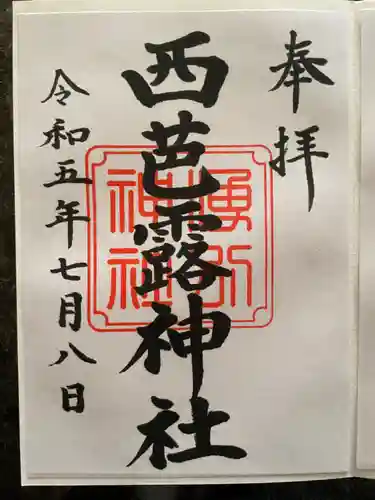 奉拝
西芭露神社
令和五年七月八日
神社